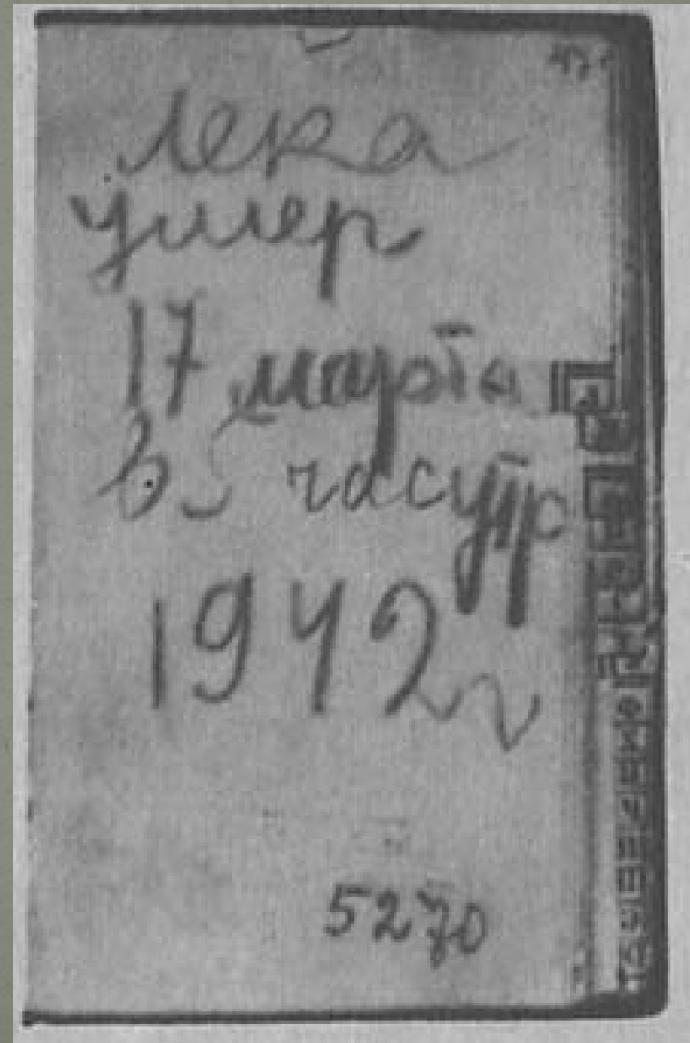 Л
Лека
умер
17 марта
в 5 час утр
1942 г
5270